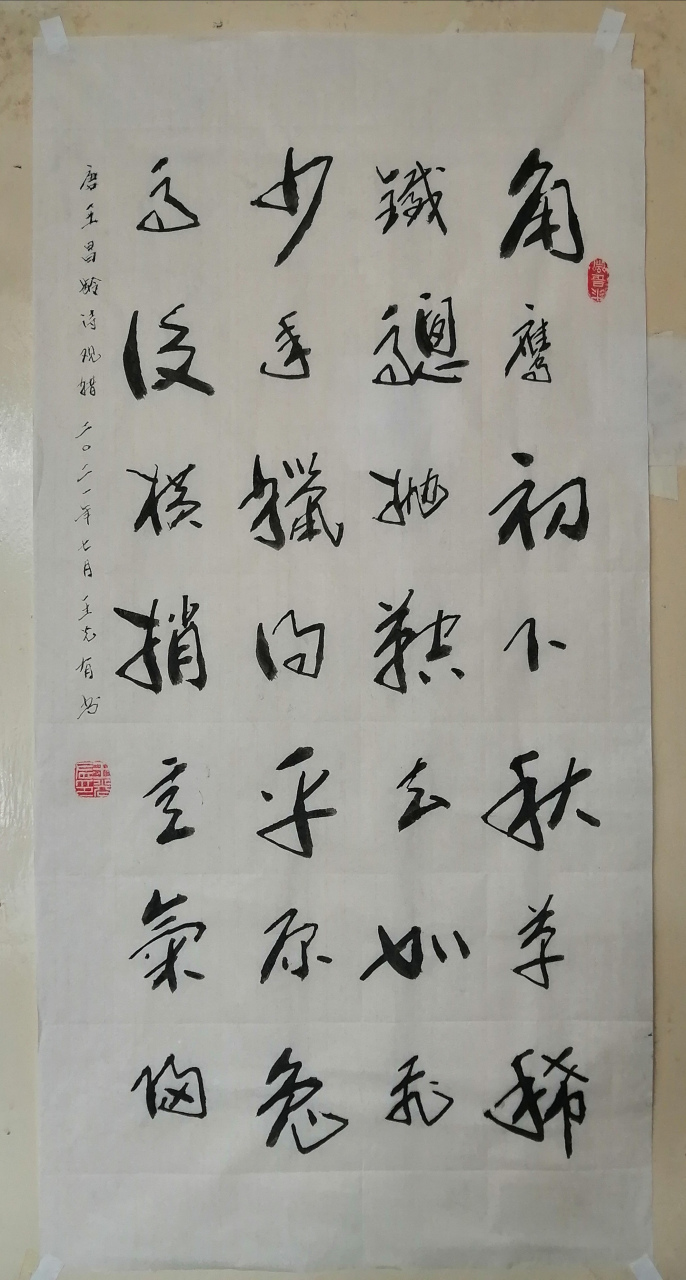 角鷹初下秋草稀
鐵驄抛鞚去如飛
少年獵得平原兔
馬後横捎意氣歸
唐王昌龄诗观猎 二〇二一年七月 王有书